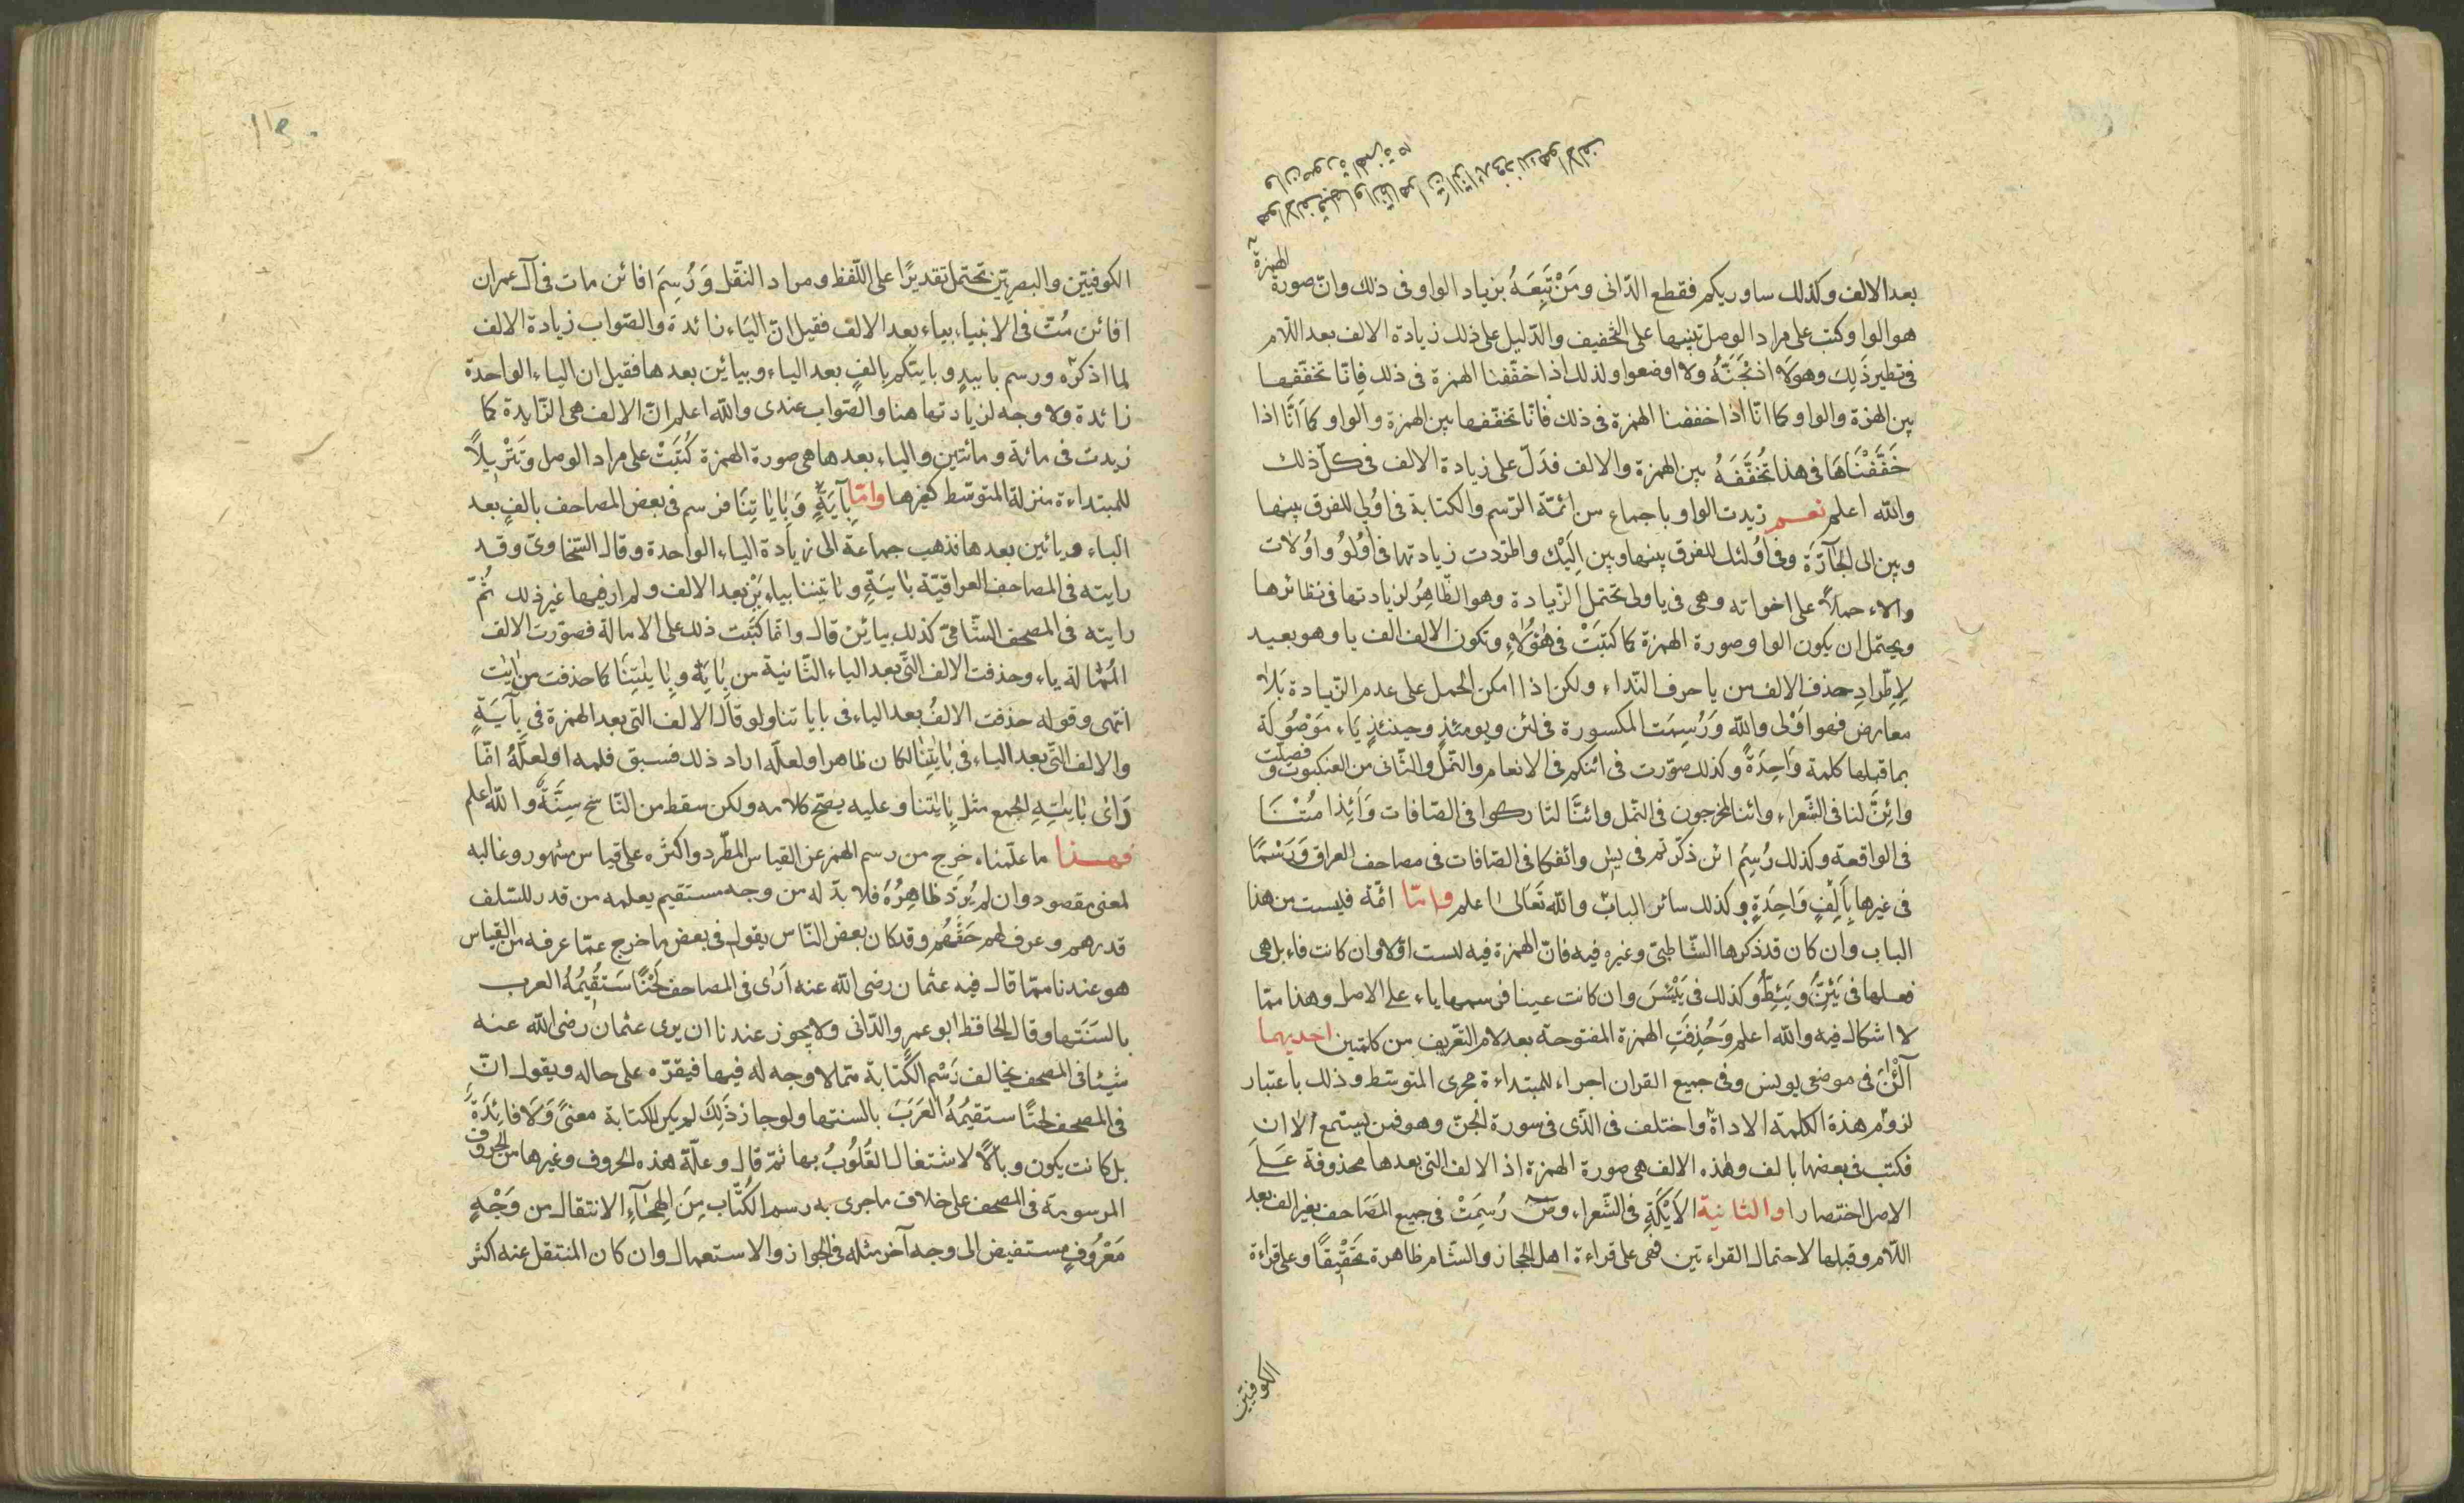 بعد الالف وكذلك ساوريكم فقطع الدّانى ومَنْ تَبِعَهُ بزياد الواو فى ذلك وانّ صورة الهمزة
هو الواو وكتب على مراد الوصل تنبيها على التخفيف والدّليل على ذلك زيادة الالف بعد اللّام
فى نظير ذَلِكَ وهو لَا اذبَحَنَّهُ ولا اوضعوا ولذلك اذا خفّفنا الهمزة فى ذلك فانّا نخفّفها
بين الهمزة والواو كما انّا اذا خففنا الهمزة فى ذلك فانّا نخفّفها بين الهمزة والواو كما اَنَّا اذا
خَفَّفْنَاهَا فى هذا نُخَفِّفَهُ بين الهمزة والالف فدَلّ على زيادة الالف فى كلّ ذلك
والله اعلم نعم زيدت الواو باجماع من ائمّة الرّسم والكتابة فى اوُلى للفرق بينها
وبين الى الجَآرَّة وفى اوُلئك للفرق بينها وبين اِلَيْك واطّردت زيادتها فى اوُلوُ واوُلات
والاء حملًا على اخواته وهى فى ياولى تحتمل الزّيادة وهو الظّاهِرُ لزيادتها فى نظائرها
ويحتمل ان يكون الواو صورة الهمزة كما كتبَتْ فى هٰؤُلاءِ وتكون الالف الف يا وهو بعيد
لاِطّرادِ حذف الالف من يا حرف النّداء ولكن اذا امكن الحمل على عدم الزّيادة بَلا
معارض فهو اَوْلى والله وَرُسِمَت المكسورة فى لئن ويومئذٍ وحينئذٍ يَاء مَوْصُولَة
بما قبلها كلمة وَاحِدَةً وكذلك صوّرت فى ائنكم فى الانعام والنّمل والثّانى من العنكبوت وفصلت
وائِنَّ لنا فى الشّعراء وائنا لمخرجون فى النّمل وائنَّا لتاركوا فى الصّافات وَاَئِذا مُتْنَا
فى الواقعة وكذلك رُسِمَ ائن ذكّرتم فى يس وائفكا فى الصّافات فى مصاحف العراق وَرَسْمًا
فى غيرها بِاَلِفٍ وَاحِدَةٍ وكذلك سائر الباب والله تَعَالىٰ اعلم وامّا ائمّة فليست من هذا
الباب وان كان قد ذكرها الشّاطبىّ وغيره فيه فانّ الهمزة فيه لست اوّلا وان كانت فاء بل هى
فعلها فى يَئِنُّ ويَئِطُّ وكذلك فى يَيْئَسَ وان كانت عينا فرسمها ياء على الاصل وهذا ممّا
لا اشكال فيه والله اعلم وَحُذِفَتِ الهمزة المفتوحة بعد لام التّعريف من كلمتين احديهما
آلْئٰنَ فى موضعى يونس وفى جميع القران اجراء للمبتداءة مجرى المتوسّط وذلك باعتبار
لزوم هذة الكلمة الاداة واختلف فى الّذى فى سورة الجنّ وهو فمن يستمع الاان
فكتب فى بعضها بالف وهذه الالف هى صورة الهمزة اذ الالف التى بعدها محذوفة عَلَى
الاصل اختصارا والثانية الاَيْكَةِ فى الشّعراء وصٓ رُسِمَتْ فى جميع المَصَاحف بغير الف بعد
اللّام وقبلها لاحتمال القراءتين فهى على قراءة اهل الحجاز والشّام ظاهرة تَحْقِيقًا وعلى قراءة
الكوفيّين
الكوفيّين والبصريّين تحتمل تقديرًا على اللّفظ ومراد النّقل وَرُسِمَ افائن مات فى آل عمران
افائن مُتّ فى الانبياء بياء بعد الالف فقيل انّ اليَاء زائدة والصّواب زيادة الالف
لما اذكرّه ورسم باييدٍ وباييّكم بِالفٍ بعد الياء وبيائين بعدها فقيل ان الياء الواحدة
زائدة ولا وجه لزيادتها هنا والصّواب عندى والله اعلم انّ الالف هى الزّايدة كما
زيدت فى مائة ومائتين والياء بعدها هى صورة الهمزة كُتِبَتْ على مراد الوصل وَتَنْزيلًا
للمبتداءة منزلة المتوسّط كغيرها وامّا بِآيَةٍ وَبِاٰيَاتِنَا فرسم فى بعض المصاحف بالفٍ بعد
الباء وبيائين بعدها فذهب جماعة الى زيادة الياء الواحدة وقال السّخاوىّ وقد
رايته فى المصاحف العراقيّة بايَيَةٍ وباييتنا بياءيَنْ بعد الالف ولم ار فيها غير ذلك ثُمّ
رايته فى المصحف الشّامىّ كذلك بيائين قال وانّما كتبت ذلك على الامالة فصوّرت الالف
المُمَالة ياء وحذفت الالف الّتى بعد الياء الثّانية من بِاٰيَةٍ وبِاٰيٰتِنَا كما حذفت من اٰيٰت
انتهى وقوله حذفت الالفُ بعد الياء فى باياتنا ولو قَالَ الالف التى بعد الهمزة فى بِآيَةٍ
والالف الّتى بعد الياء فى بِاٰيٰتِنَا لكان ظاهرا ولعلّه اراد ذلك فسبق قلمه او لعلّهُ امّا
رَاىٰ بِاٰيٰتِهِ الجمع مثل بِاٰيٰتنا وعليه يصحّ كلامه ولكن سقط من النّاسخ سِنَّةٌ والله اعلم
فهذا ما علّمناه خرج من رسم الهمز عن القياس المطّرد واكثره على قياس مشهور وغالبه
لمعنى مقصود وان لم يُرَدّ ظَاهِرُهُ فلا بدّ له من وجه مستقيم يعلمه من قدر للسّلف
قدرهم وعرف لهم حَقّهُم وقد كان بعض النّاس يقول فى بعض ما خرج عمّا عرفه من القياس
هو عندنا ممّا قال فيه عثمان رضى الله عنه اَرىٰ فى المصاحف لَحْنًا سَتُقيمُهُ العرب
بالسَنَتها وقال الحافظ ابو عمرو الدّانى ولا يجوز عندنا ان يرى عثمان رضى الله عنه
شيئا فى المصحف يخالف رَسْم الكتابة ممّا لا وجه له فيها فيقرّه على حاله ويقول انّ
فى المصحف لحنًا ستقيمُهُ العَرَبَ بالسنتها ولو جاز ذَلِكَ لم يكن للكتابة معنىً وَلَا فائِدَةً
بل كانت يكون وبالًا لاشتغال القُلُوبُ بها ثمّ قال وعلّة هذه الحروف وغيرها من الحروف
المرسومة فى المصحف على خلاف ماجرى به رسم الكُتّاب مِنَ الهِجَآءِ الانتقال من وَجْهٍ
مَعْرُوفٍ مستفيض الى وجه آخر مثله فى الجواز والاستعمال وان كان المنتقل عنه اكثر